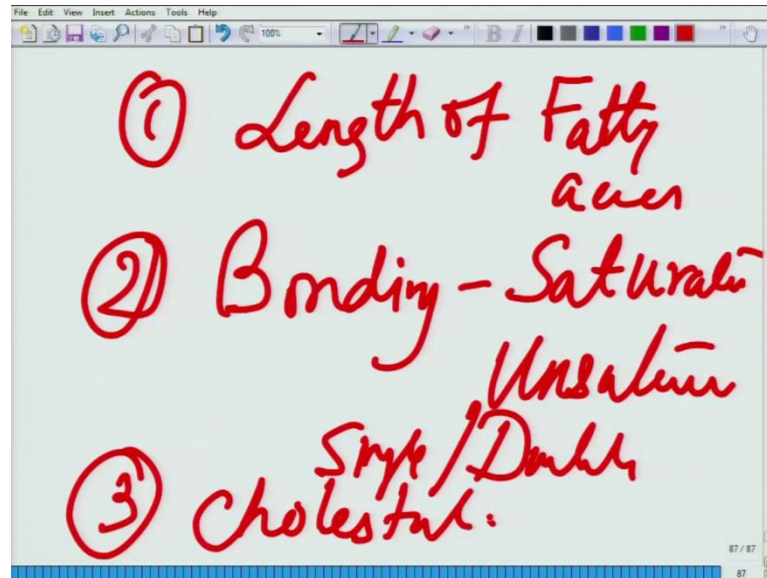 File Edit View Insert Actions Tools Help
100% B I
1 Length of Fatty
2 Bonding - Saturatin
Single / Double
3 Cholestrol.
87 / 87
87